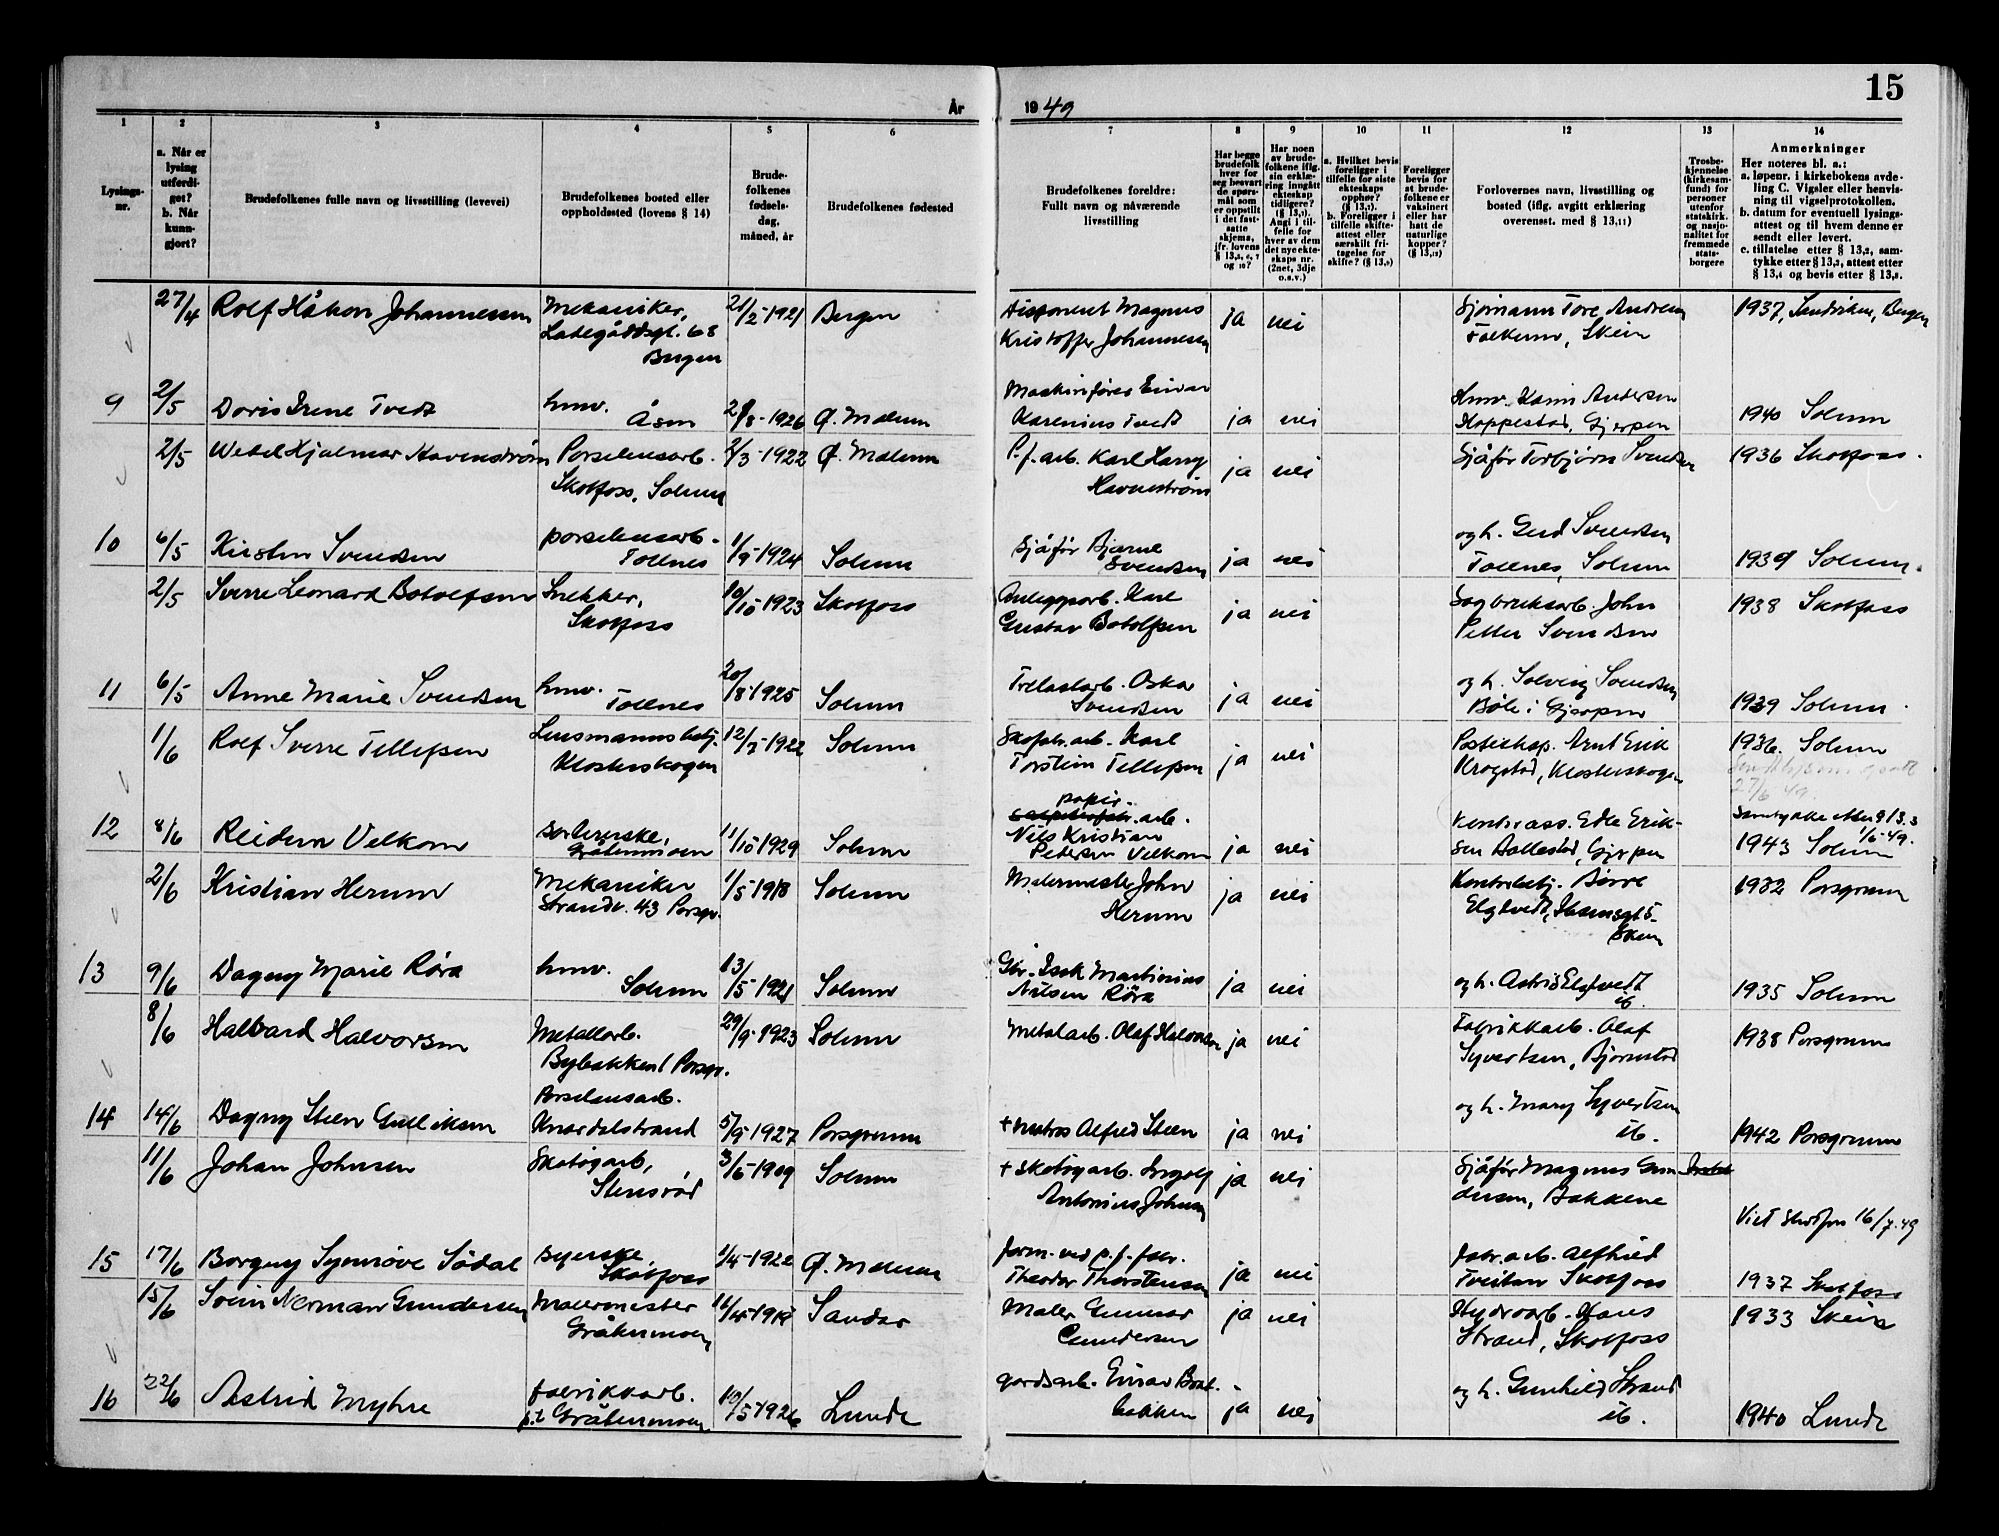 År 1949
15
1 2 3 4 5 6 7 8 9 10 11 12 13 14
Lysings-
nr.
a. Når er
lysing
utferdi-
get?
b. Når
kunn-
gjort?
Brudefolkenes fulle navn og livsstilling (levevei)
Brudefolkenes bosted eller
oppholdssted (lovens § 14)
Brude-
folkenes
fødsels-
dag,
måned, år
Brudefolkenes fødested
Brudefolkenes foreldre:
Fullt navn og nåværende
livsstilling
Har begge
brudefolk
hver for
seg besvart
de spørs-
mål som
er oppstilt
i det fast-
satte
skjema,
jfr. lovens
§ 13,5, 6, 7
og 10?
Har noen
av brude-
folkene iflg.
sin erklæ-
ring inngått
ekteskap
tidligere?
(§ 13,7).
Angi i til-
felle for
hver av dem
det nye ekte-
skaps nr.
(2net, 3dje
o.s.v.)
a. Hvilket bevis
foreligger i
tilfelle for siste
ekteskaps
opphør?
(§ 13,7).
b. Foreligger i
tilfelle skifte-
attest eller
særskilt fri-
tagelse for
skifte? (§ 13,9)
Foreligger
bevis for
at brude-
folkene er
vaksinert
eller har
hatt de
naturlige
kopper?
(§ 13,12)
Forlovernes navn, livsstilling og
bosted (iflg. avgitt erklæring
overensst. med § 13,11)
Trosbe-
kjennelse
(kirkesam-
fund) for
personer
utenfor
statskirk.
og nasjo-
nalitet for
fremmede
stats-
borgere
Anmerkninger
Her noteres bl. a.:
a. løpenr. i kirkebokens avde-
ling C. Vigsler eller henvis-
ning til vigselprotokollen.
b. datum for eventuell lysings-
attest og til hvem denne er
sendt eller levert.
c. tillatelse etter § 13,2, sam-
tykke etter § 13,3, attest etter
§ 13,4 og bevis etter § 13,8.
27/4 Rolf Håkon Johannessen Mekaniker, Ladegårdsgt. 68 Bergen 21/2-1921 Bergen Disponent Magnus Kristoffer Johannessen ja nei Sjømann Tore Andersen Falkum, Skien 1937, Sandviken, Bergen
9 2/5 Doris Irene Tvedt hmv. Åsen 28/8-1926 Ø. Melum Maskinfører Einar Karenius Tvedt ja nei Hmv. Karin Andersen Hoppestad, Gjerpen 1940 Solum
2/5 Wedel Hjalmar Havenstrøm Porselensarb. Skotfoss, Solum 2/3-1922 Ø. Melum P.f. arb. Karl Harry Havenstrøm ja nei Sjåfør Torbjørn Svendsen 1936 Skotfoss.
10 6/5 Kirsten Svendsen porselensarb. Tollnes 1/9-1924 Solum Sjåfør Bjarne Svendsen ja nei og h. Gerd Svendsen Tollnes, Solum 1939 Solum.
2/5 Sverre Leonard Botolfsen Snekker, Skotfoss 10/10-1923 Skotfoss Anleggsarb. Karl Gustav Botolfsen ja nei Sagbruksarb. John Petter Svendsen 1938 Skotfoss
11 6/5 Anne Marie Svendsen hmv. Tollnes 20/8-1925 Solum Trelastarb. Oskar Svendsen ja nei og h. Solveig Svendsen Bøle i Gjerpen 1939 Solum.
1/6 Rolf Sverre Tellefsen Lensmannsbetj. Klosterskogen 12/3-1922 Solum Skofabr.arb. Karl Torstein Tellefsen ja nei Postekspr. Arnt Erik Krogstad, Klosterskogen 1936. Solum
27/6 49.
12 8/6 Reidun Velkom sorterske, Gråtenmoen 11/10-1929 Solum papir-arb. Nils Kristian Petersen Velkom ja nei Kontrass. Edle Eriksen Aallestad, Gjerpen Samtykke etter § 13.3 1/6-49. 1943 Solum
2/6 Kristian Herum Mekaniker Strandv. 43 Porsgr. 1/5-1918 Solum Malermester John Herum ja nei Kontrollbetj. Børre Elgtvedt, Skien 1932 Porsgrunn
13 9/6 Dagny Marie Røra hmv. Solum 13/5-1921 Solum Gbr. Isak Martinius Nilsen Røra ja nei og h. Astrid Elgtvedt ib. 1935 Solum
8/6 Halvard Halvorsen Metallarb. Bybakken 1 Porsgr. 29/9-1923 Solum Metalarb. Olaf Halvorsen ja nei Fabrikkarb. Olaf Syvertsen, Bjørnstad 1938 Porsgrunn
14 14/6 Dagny Steen Gulliksen Porselensarb. Knardalstrand 5/9-1927 Porsgrunn + matros Alfred Steen ja nei og h. Mary Syvertsen ib. 1942 Porsgrunn
11/6 Johan Johnsen Skotøgarb, Stensrød 3/6-1909 Solum + Skotøgarb. Ingolf Antonius Johnsen ja nei Sjåfør Magnus Gundersen, Bakkene
15 17/6 Borgny Synnøve Sødal syerske, Skotfoss 1/4-1922 Ø. Melum form. ved p.f. fabr. Theodor Thorstensen ja nei fabr.arb. Alfhild Tveitan Skotfoss Viet Skotfoss 16/7-49 1937 Skotfoss
15/6 Svein Norman Gundersen Malermester Gråtenmoen 16/4-1918 Sandar Maler Gunnar Gundersen ja nei Hydroarb. Hans Strand, Skotfoss 1933 Skien
16 22/6 Astrid Myhre fabrikkarb. p.t. Gråtenmoen 10/5-1926 Lunde gardsarb. Einar Bratbakken ja nei og h. Gunhild Strand ib. 1940 Lunde